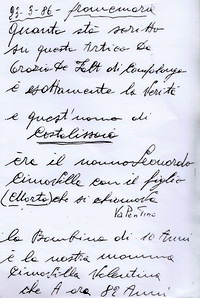 23-3-86 - francemara
Quanto sta scritto
su questo Articolo da
Grazia De Felt di Campolongo
è esattamente la Verità
e quest'uomo di
Costalissoio
era il nonno Leonardo
Cimostella con il figlio
(Morto) che si chiamava
Valentino
la Bambina di 10 Anni
è la nostra mamma
Cimostella Valentina
che A ora 82 Anni